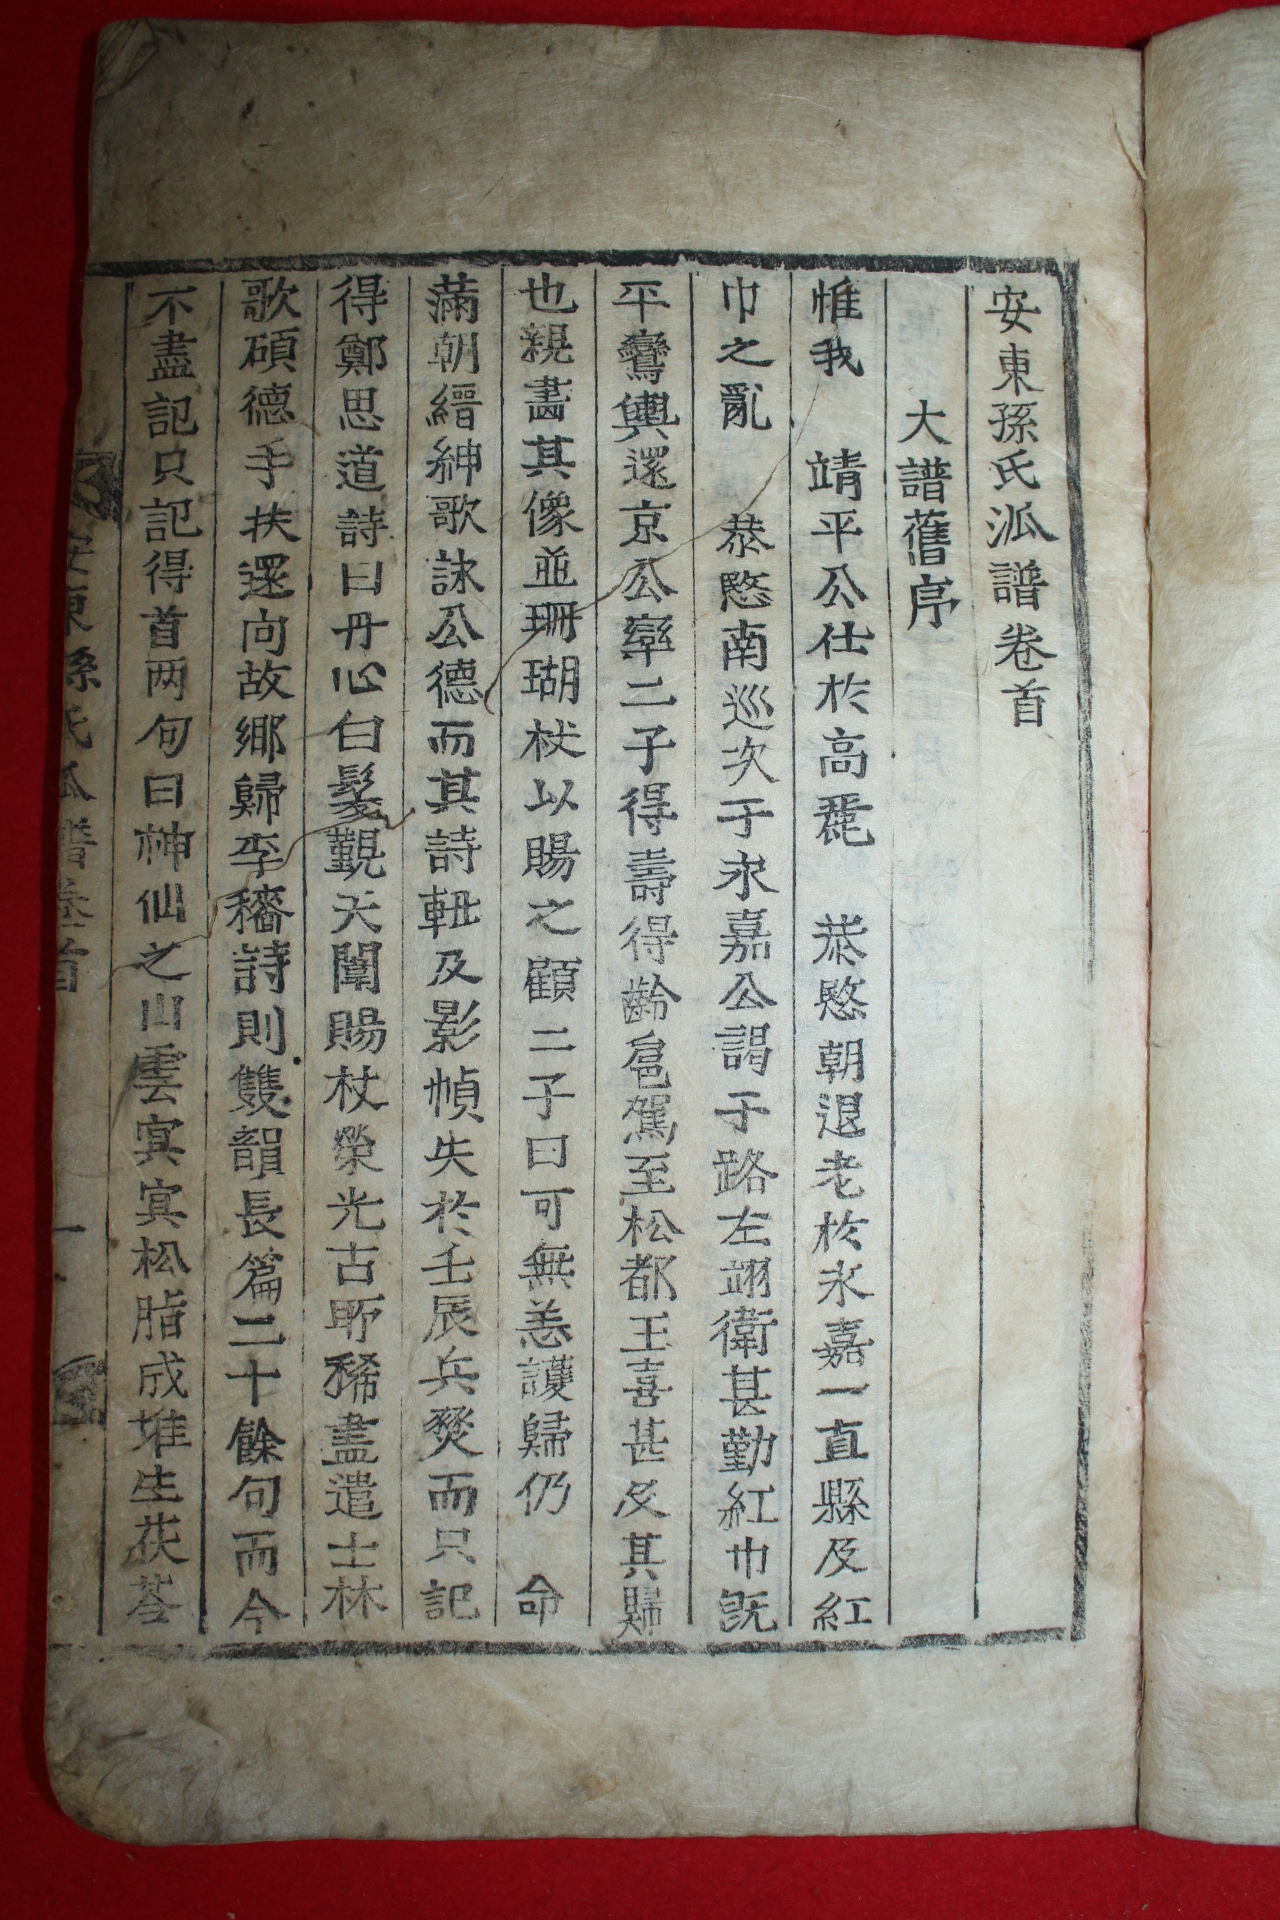 安東孫氏派譜卷首
大譜舊序
惟我　靖平公仕於高麗　恭愍朝退老於永嘉一直縣及紅
巾之亂　恭愍南巡次于永嘉公謁于路左翊衛甚勤紅巾旣
平鸞輿還京公率二子得壽得齡扈駕至松都王喜甚及其歸
也親畵其像並珊瑚杖以賜之顧二子曰可無恙護歸仍　命
滿朝縉紳歌詠公德而其詩軸及影幀失於壬辰兵燹而只記
得鄭思道詩曰丹心白髮覲天闈賜杖榮光古所稀盡遣士林
歌碩德手扶還向故鄕歸李穡詩則雙韻長篇二十餘句而今
不盡記只記得首两句曰神仙之山雲冥冥松脂成堆生茯苓
安東孫氏派譜卷首
一